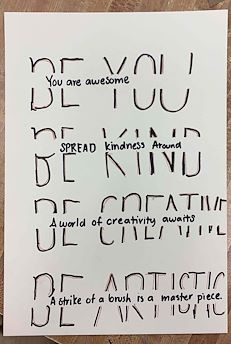 BE YOU
You are awesome
BE KIND
SPREAD kindness Around
BE CREATIVE
A world of creativity awaits
BE ARTISTIC
A strike of a brush is a master piece.